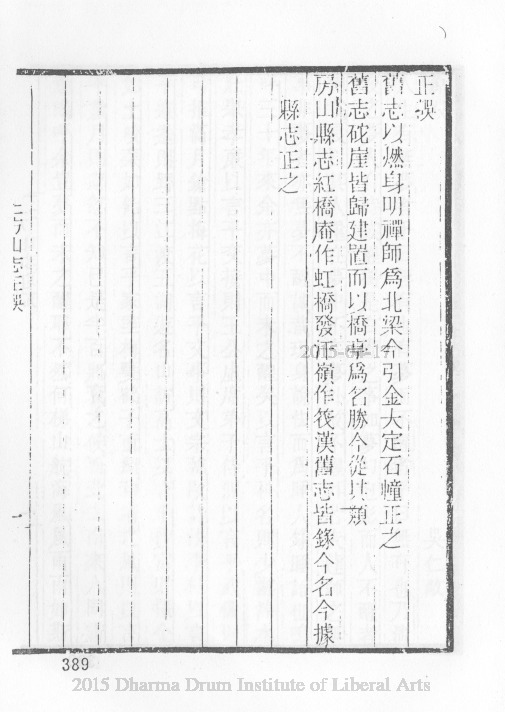 正誤
舊志以燃身明禪師爲北梁今引金大定石幢正之
舊志砣崖皆歸建置而以橋亭爲名勝今從其類
房山縣志紅橋庵作虹橋發汗嶺作筏漢舊志皆錄今名今據
縣志正之
上方山志正誤
一
2015-04-17
389
2015 Dharma Drum Institute of Liberal Arts